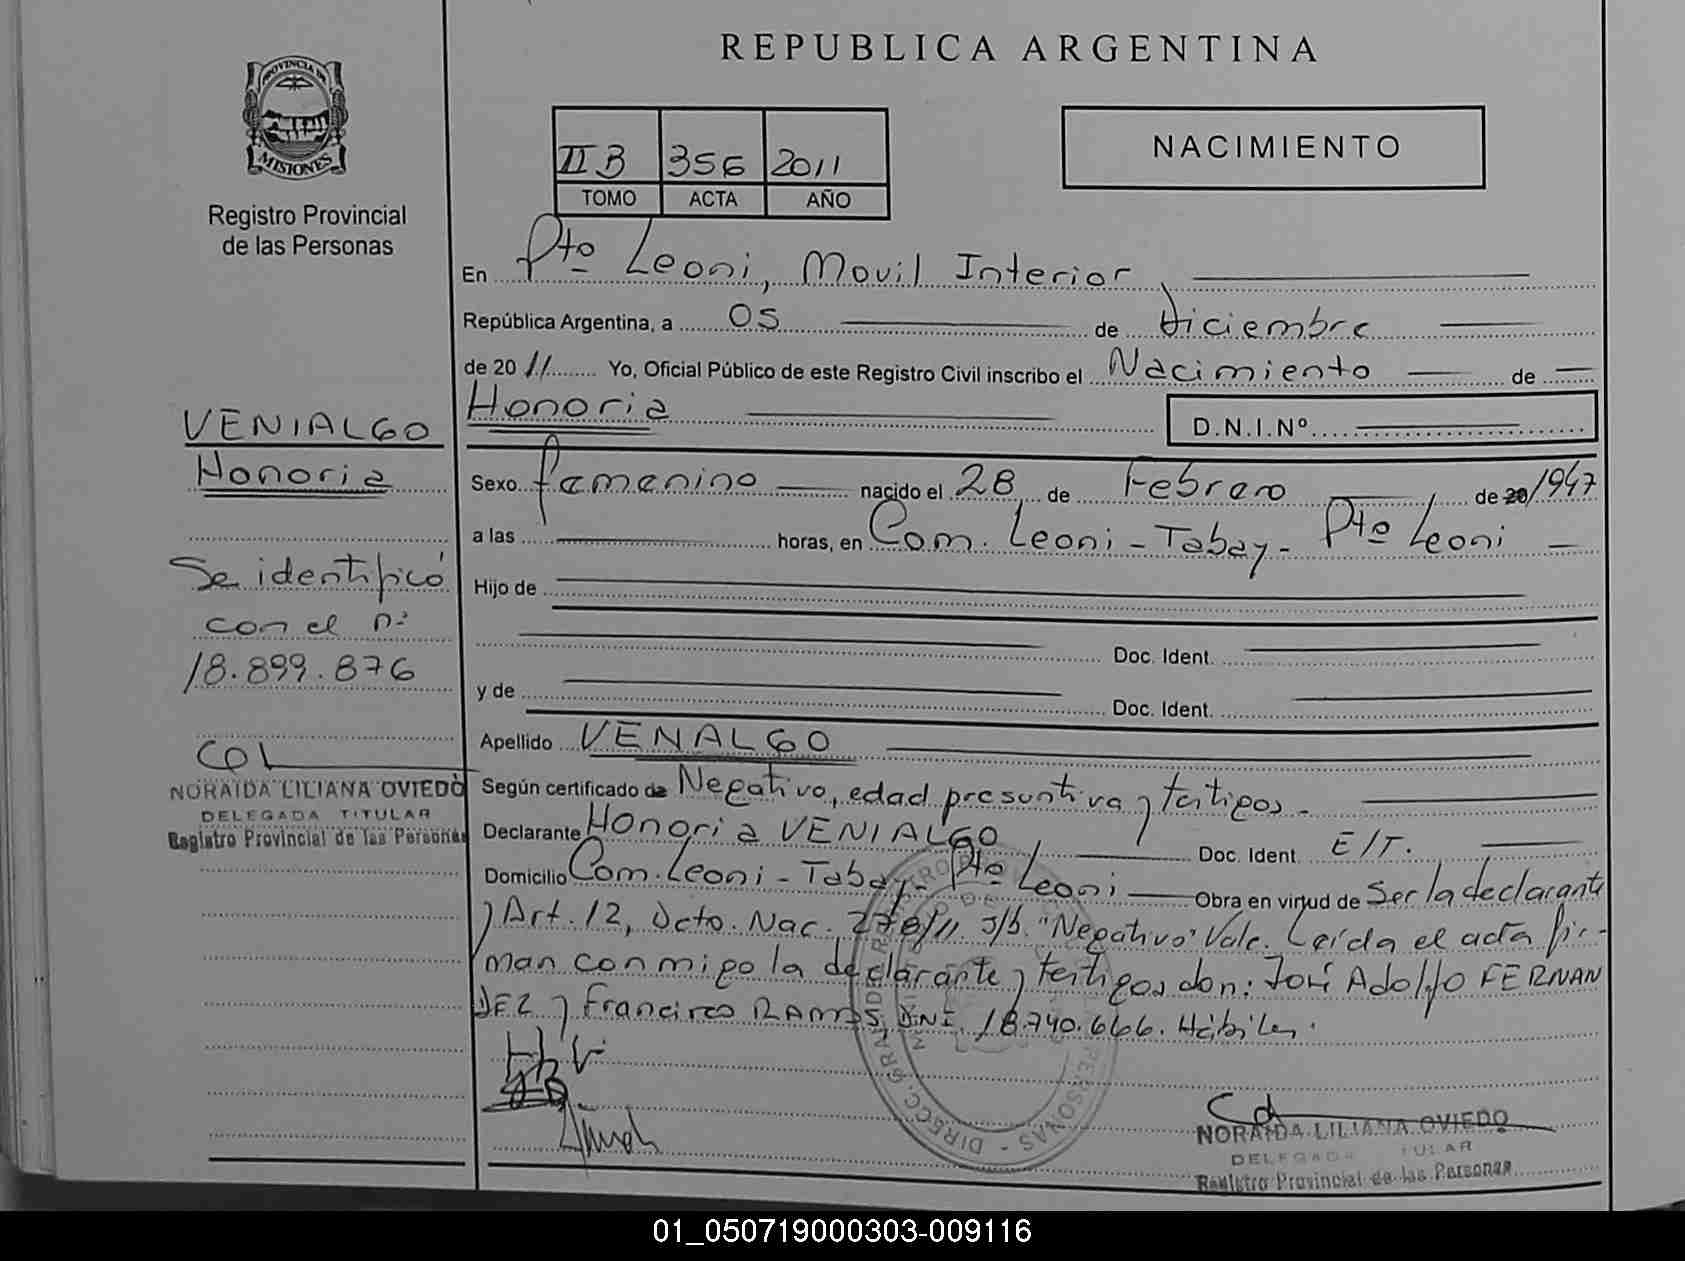 REPUBLICA ARGENTINA
PROVINCIA DE
MISIONES
Registro Provincial
de las Personas
II B 356 2011
TOMO ACTA AÑO
NACIMIENTO
En Pto Leoni, Movil Interior
República Argentina, a 05 de Diciembre
de 2011 Yo, Oficial Público de este Registro Civil inscribo el Nacimiento de
Honoria
D.N.I.Nº
VENIALGO
Honoria
Se identificó
con el nº
18.899.876
NORAIDA LILIANA OVIEDO
DELEGADA TITULAR
Registro Provincial de las Personas
Sexo femenino nacido el 28 de Febrero de 20/1947
a las horas, en Com. Leoni - Tabay - Pto Leoni
Hijo de
Doc. Ident.
y de Doc. Ident.
Apellido VENALGO
Según certificado de Negativo, edad presuntiva y testigos.
Declarante Honoria VENIALGO Doc. Ident. E/T.
Domicilio Com. Leoni - Tabay - Pto Leoni Obra en virtud de Ser la declarante
y Art. 12, Dcto. Nac. 278/11. S/b. "Negativo" Vale. Leída el acta fir-
man conmigo la declarante y testigos don: José Adolfo FERNAN
DEZ y Francisco RAMOS, DNI. 18.740.666. Hábiles.
NORAIDA LILIANA OVIEDO
DELEGADA TITULAR
Registro Provincial de las Personas
01_050719000303-009116